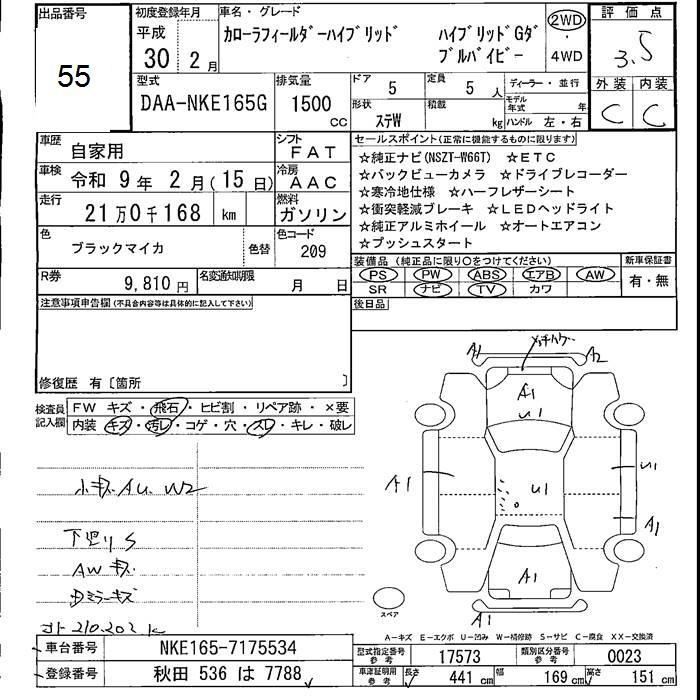 出品番号
55
初度登録年月
平成
30 2月
車名・グレード
カローラフィールダーハイブリッド ハイブリッドGダブルバイビー
2WD
4WD
評価点
3.5
型式
DAA-NKE165G
排気量
1500
CC
ドア
5
定員
5 人
ディーラー・並行
形状
ステW
積載
kg
モデル年式
年
ハンドル 左・右
外装 内装
C C
車歴
自家用
シフト
FAT
車検
令和 9年 2月(15日)
冷房
AAC
走行
21万0千168 km
燃料
ガソリン
色
ブラックマイカ
色替
色コード
209
R券
9,810円
名変通知期限
月 日
セールスポイント(正常に機能するものに限ります)
☆純正ナビ(NSZT-W66T) ☆ETC
☆バックビューカメラ ☆ドライブレコーダー
☆寒冷地仕様 ☆ハーフレザーシート
☆衝突軽減ブレーキ ☆LEDヘッドライト
☆純正アルミホイール ☆オートエアコン
☆プッシュスタート
装備品(純正品に限り○をつけてください)
PS PW ABS エアB AW
SR ナビ TV カワ
新車保証書
有・無
後日品
注意事項申告欄(不具合内容等は具体的に記入して下さい)
修復歴 有[箇所 ]
検査員記入欄
FW キズ・飛石・ヒビ割・リペア跡・×要
内装 キズ・汚レ・コゲ・穴・スレ・キレ・破レ
小キズAU. W2
下廻りS
AWキズ
A1 A2
A1
U1
A1 U1 U1
A1
A1
A1
スペア
A-キズ E-エクボ U-凹み W-補修跡 S-サビ C-腐食 XX-交換済
車台番号
NKE165-7175534
登録番号
秋田 536 は 7788
型式指定番号
参考
17573
類別区分番号
参考
0023
車庫証明用
参考
長さ 441 cm 幅 169 cm 高さ 151 cm